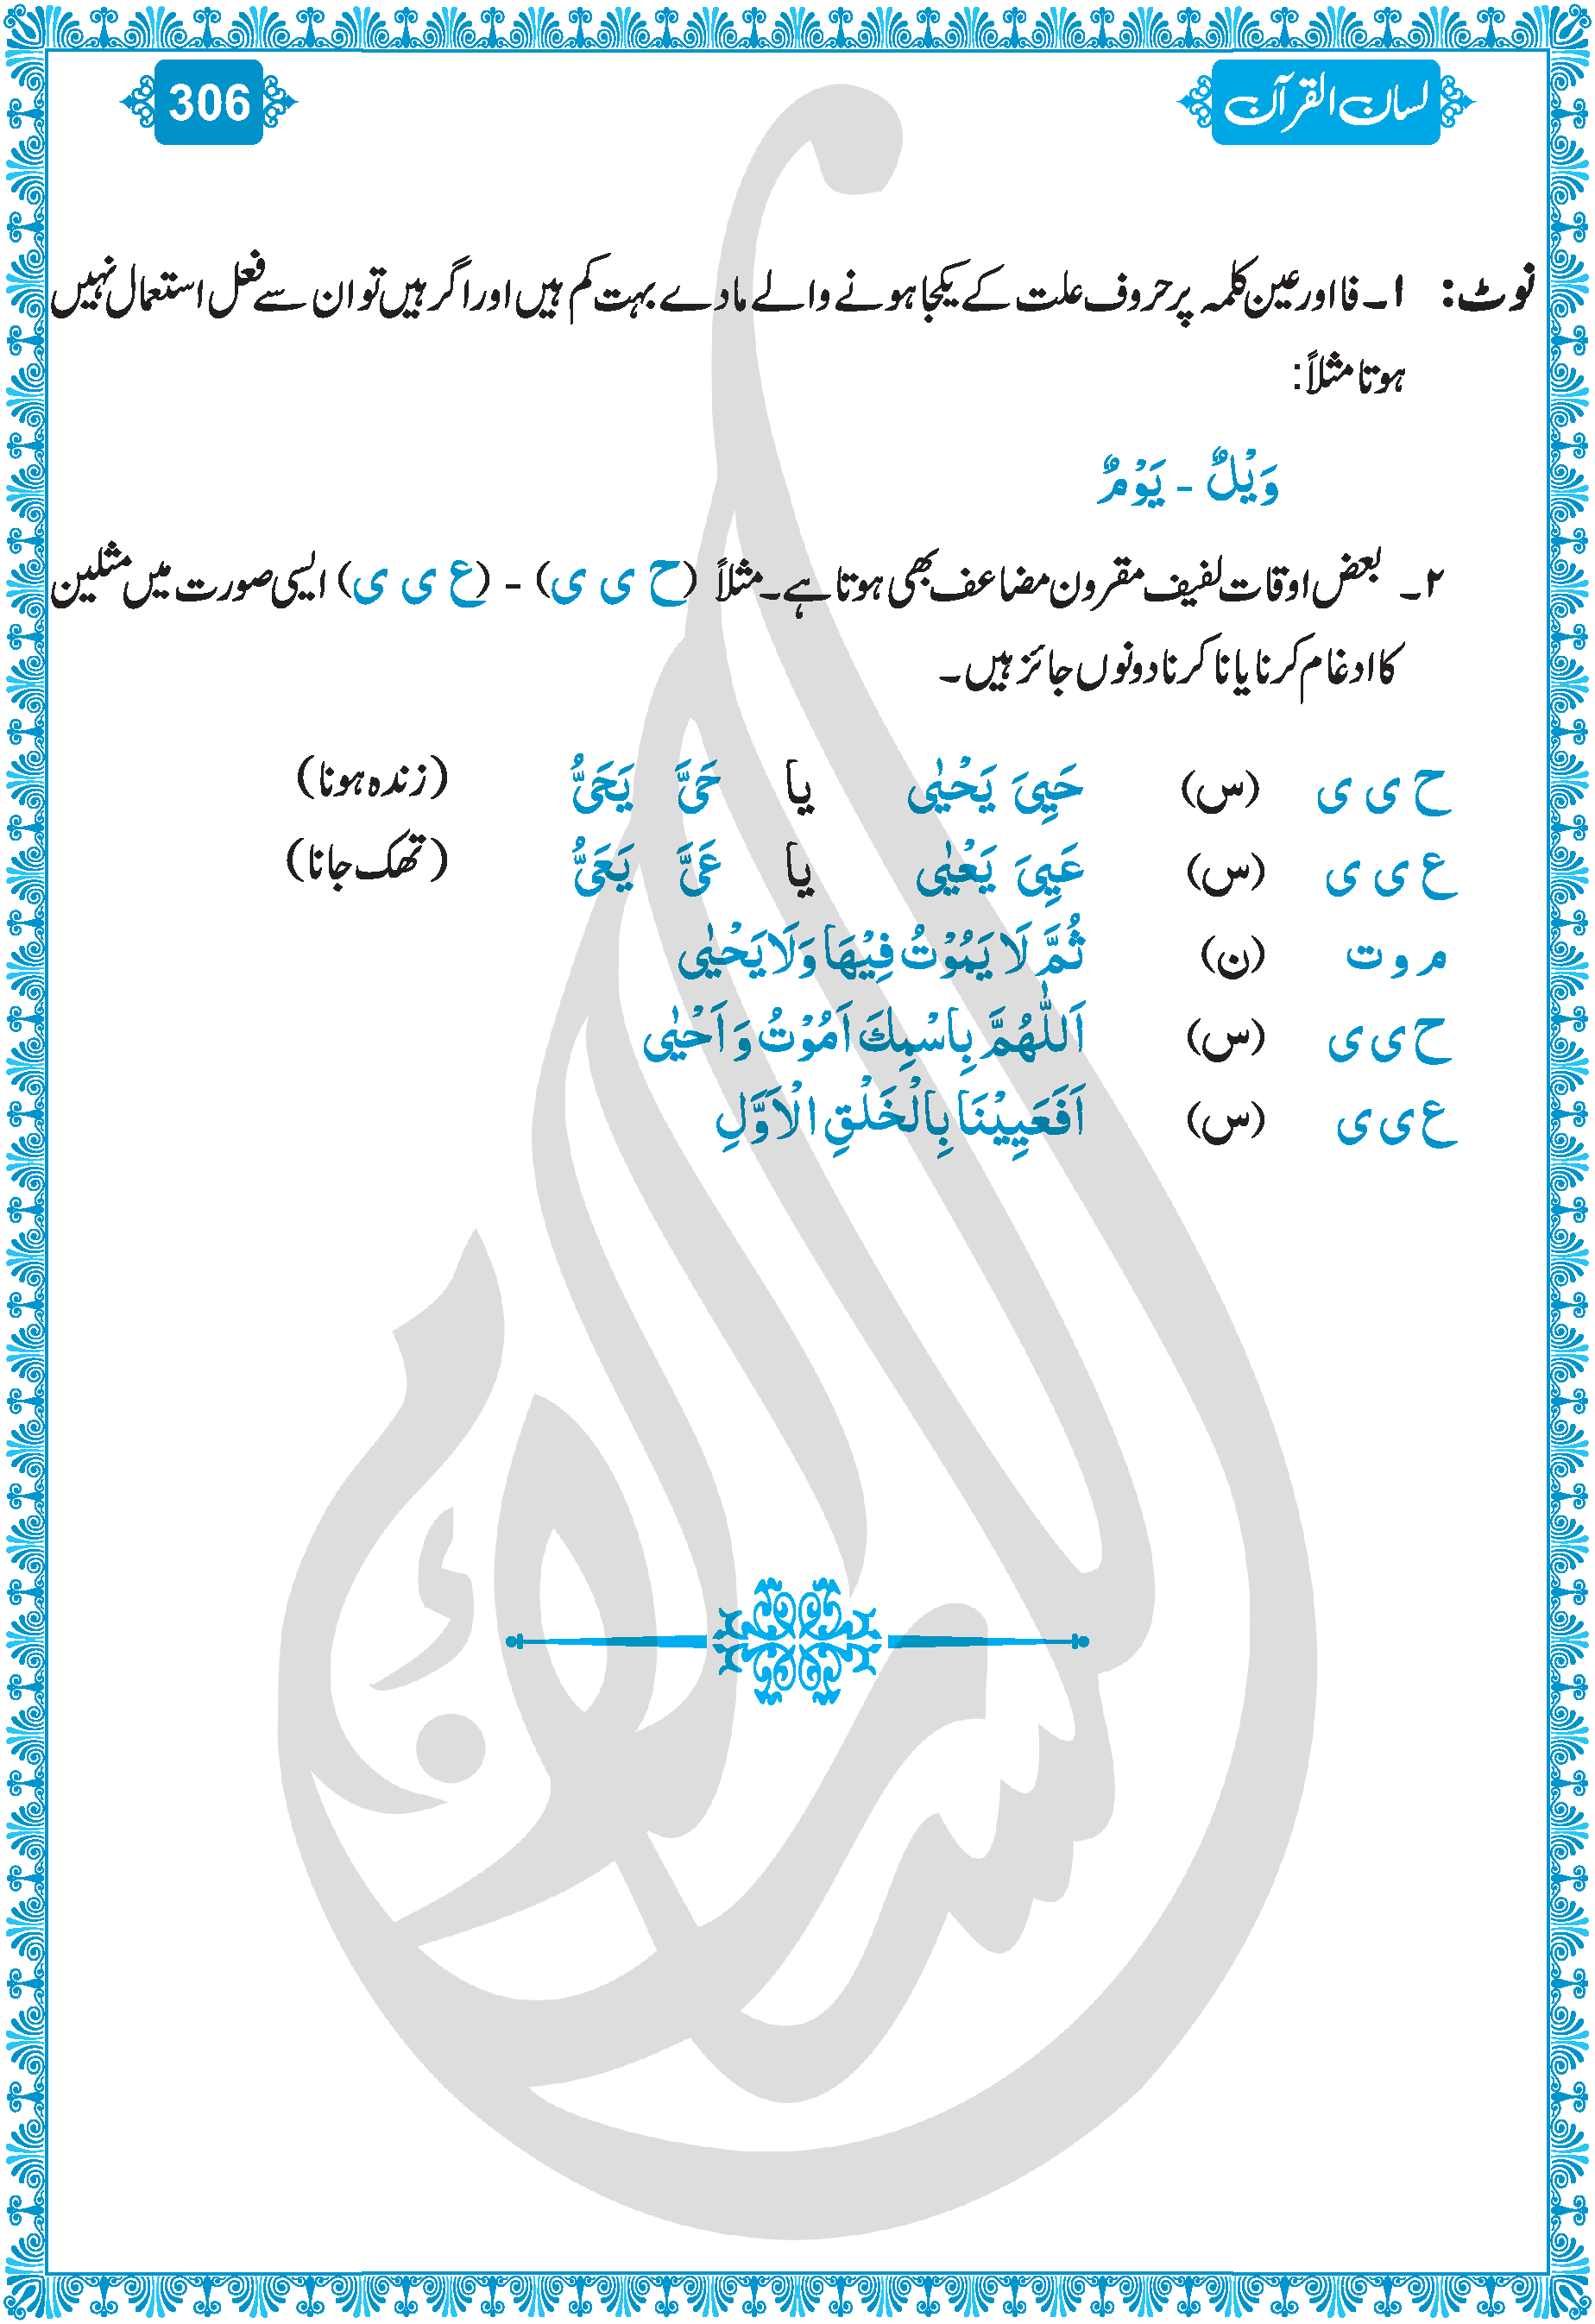 لسان القرآن
306
نوٹ: ۱۔ فا اور عین کلمہ پر حروف علت کے یکجا ہونے والے مادے بہت کم ہیں اور اگر ہیں تو ان سے فعل استعمال نہیں
ہوتا مثلاً:
وَيْلٌ - يَوْمٌ
۲۔ بعض اوقات لفیف مقرون مضاعف بھی ہوتا ہے۔ مثلاً (ح ی ی) - (ع ی ی) ایسی صورت میں مثلین
کا ادغام کرنا یا نا کرنا دونوں جائز ہیں۔
ح ی ی (س) حَيِيَ يَحْيٰى یا حَيَّ يَحَيُّ (زندہ ہونا)
ع ی ی (س) عَيِيَ يَعْيٰى یا عَيَّ يَعَيُّ (تھک جانا)
م و ت (ن) ثُمَّ لَا يَمُوْتُ فِيْهَا وَلَا يَحْيٰى
ح ی ی (س) اَللّٰهُمَّ بِاسْمِكَ اَمُوْتُ وَ اَحْيٰى
ع ی ی (س) اَفَعَيِيْنَا بِالْخَلْقِ الْاَوَّلِ